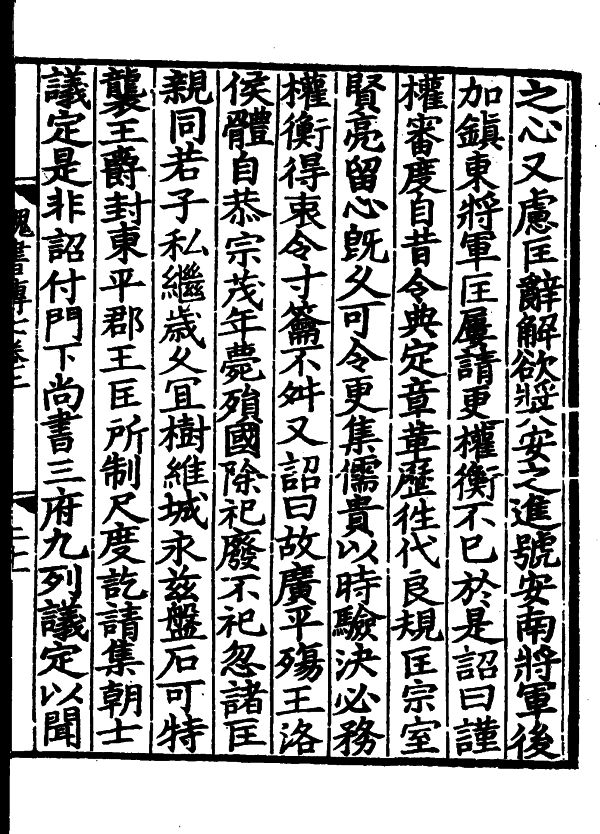 之心又慮匡辭解欲奬安之進號安南將軍後
加鎮東將軍匡屢請更權衡不已於是詔曰謹
權審度自昔令典定章革歷徃代良規匡宗室
賢亮留心旣久可令更集儒貴以時驗決必務
權衡得衷令寸籥不舛又詔曰故廣平殤王洛
侯體自恭宗茂年薨殞國除祀廢不祀忽諸匡
親同若子私繼歲久宜樹維城永兹盤石可特
襲王爵封東平郡王匡所制尺度訖請集朝士
議定是非詔付門下尚書三府九列議定以聞
魏書傳